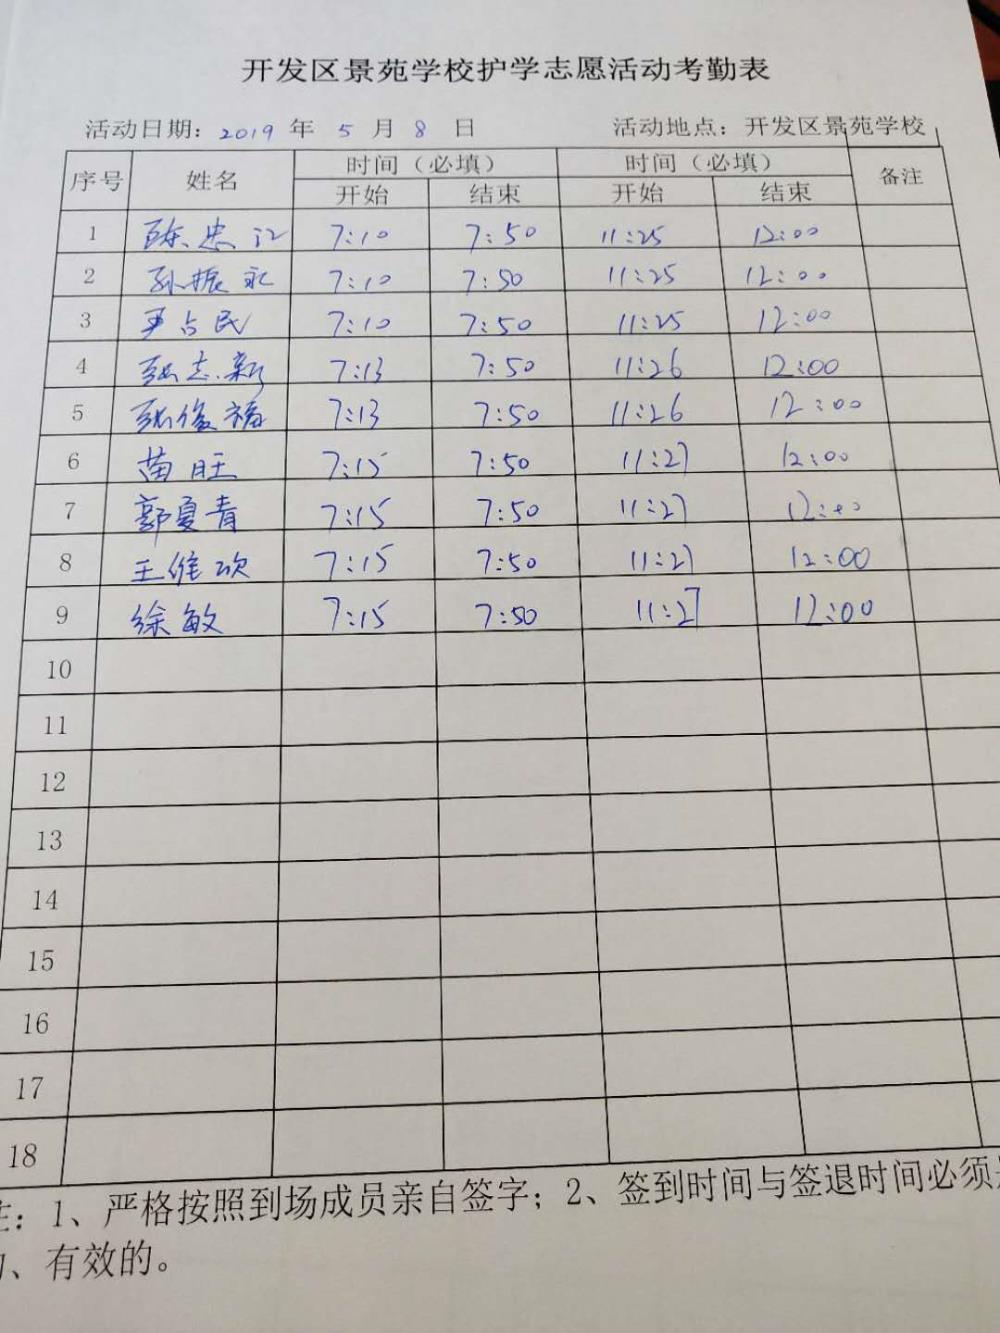 开发区景苑学校护学志愿活动考勤表
活动日期: 2019 年 5 月 8 日 活动地点: 开发区景苑学校
序号 姓名 时间（必填） 时间（必填） 备注
开始 结束 开始 结束
1 陈忠江 7:10 7:50 11:25 12:00
2 孙振礼 7:10 7:50 11:25 12:00
3 占民 7:10 7:50 11:25 12:00
4 张志新 7:13 7:50 11:26 12:00
5 张俊福 7:13 7:50 11:26 12:00
6 苗旺 7:15 7:50 11:27 12:00
7 郭夏青 7:15 7:50 11:27 12:00
8 王维欢 7:15 7:50 11:27 12:00
9 徐敏 7:15 7:50 11:27 12:00
10
11
12
13
14
15
16
17
18
注: 1、严格按照到场成员亲自签字; 2、签到时间与签退时间必须
、有效的。